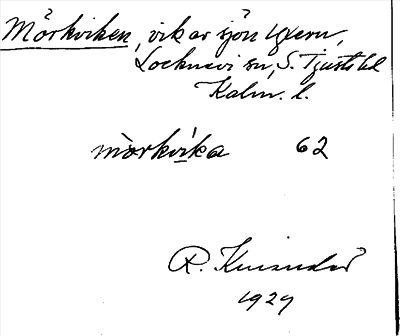 Mörkviken, vik av sjön Yxern,
Locknevi sn, S. Tjusts hd
Kalm. l.
mòrkvi̱ka 62
R.
1929